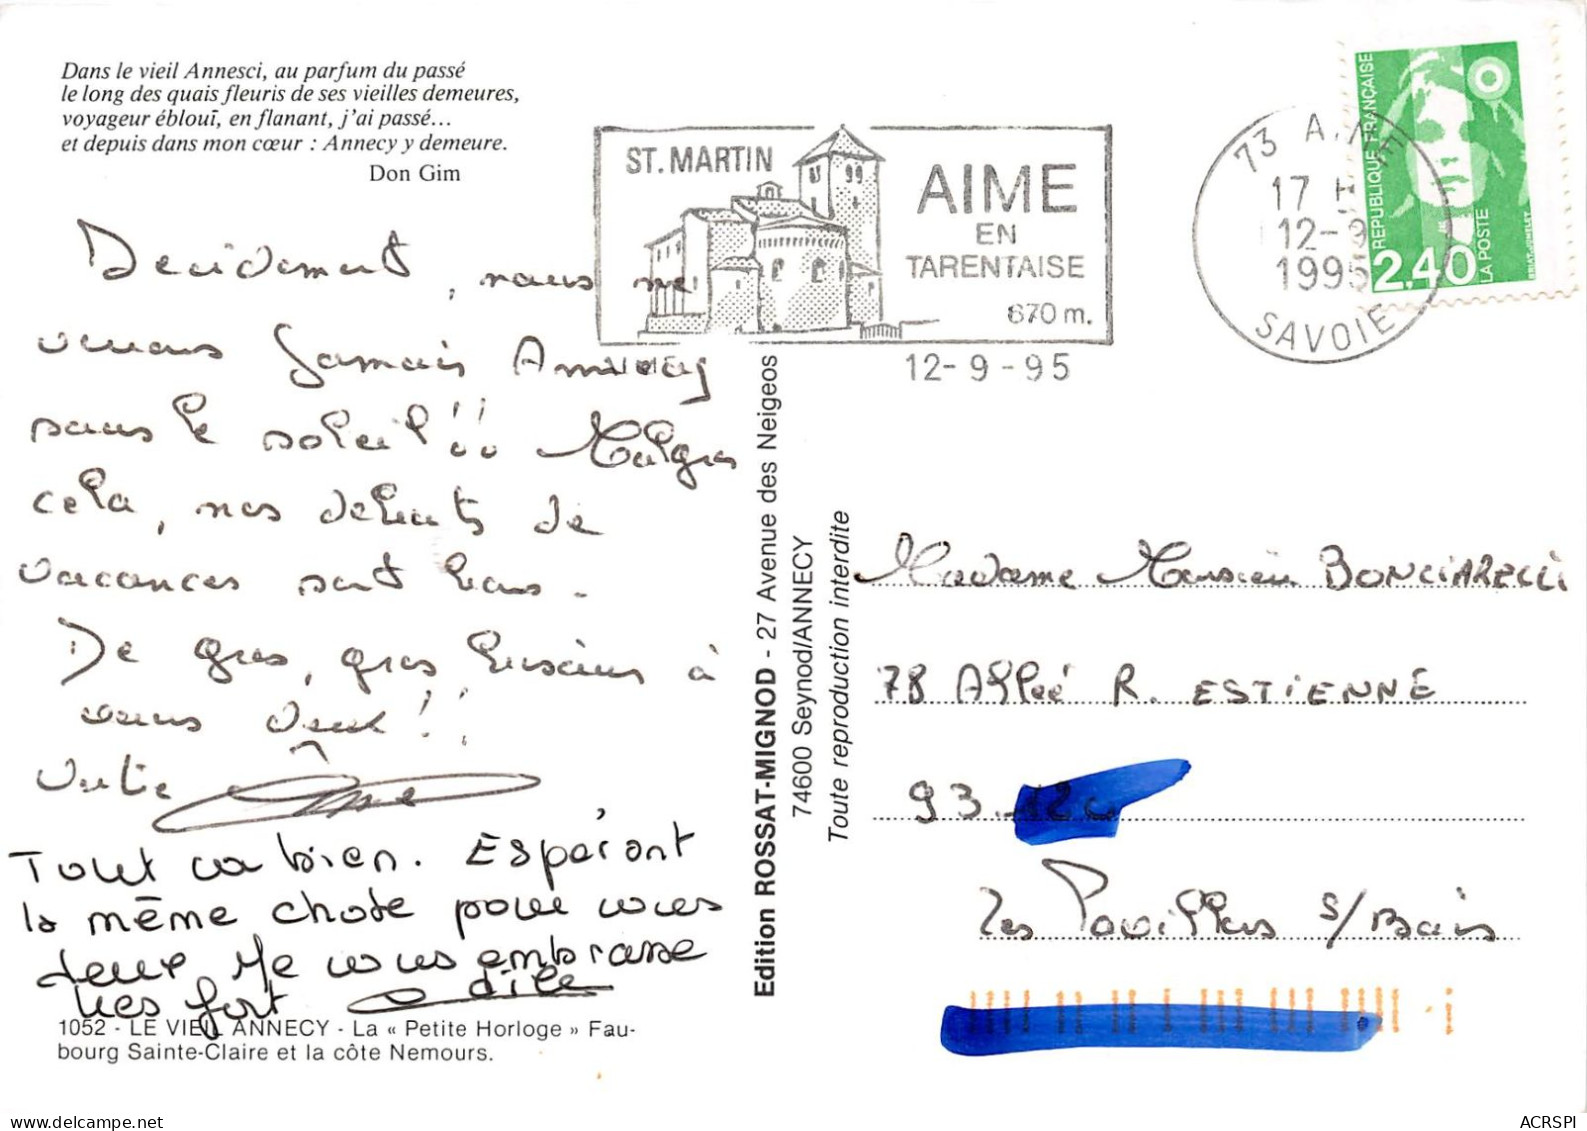 Dans le vieil Annesci, au parfum du passé
le long des quais fleuris de ses vieilles demeures,
voyageur éblouï, en flanant, j'ai passé...
et depuis dans mon cœur : Annecy y demeure.
Don Gim
Decidement, nous ne
verrons Jamais Annecy
sous le soleil !! Malgres
cela, nos debuts de
vacances sont bons.
De gros, gros bisous à
vous deux !!
Tout va bien. Espéront
la même chose pour vous
deux. Je vous embrasse
tres fort Odile
1052 - LE VIEIL ANNECY - La « Petite Horloge » Fau-
bourg Sainte-Claire et la côte Nemours.
Edition ROSSAT-MIGNOD - 27 Avenue des Neigeos
74600 Seynod/ANNECY
Toute reproduction interdite
ST. MARTIN
AIME
EN
TARENTAISE
670 m.
12-9-95
73 AIME
17 H
12-9
1995
SAVOIE
REPUBLIQUE FRANÇAISE
LA POSTE
2,40
BRIAT-JUMELET
Madame Monsieur BONCIARELLI
78 Allée R. ESTIENNE
93
Les Pavillons s/Bois
ACRSPI